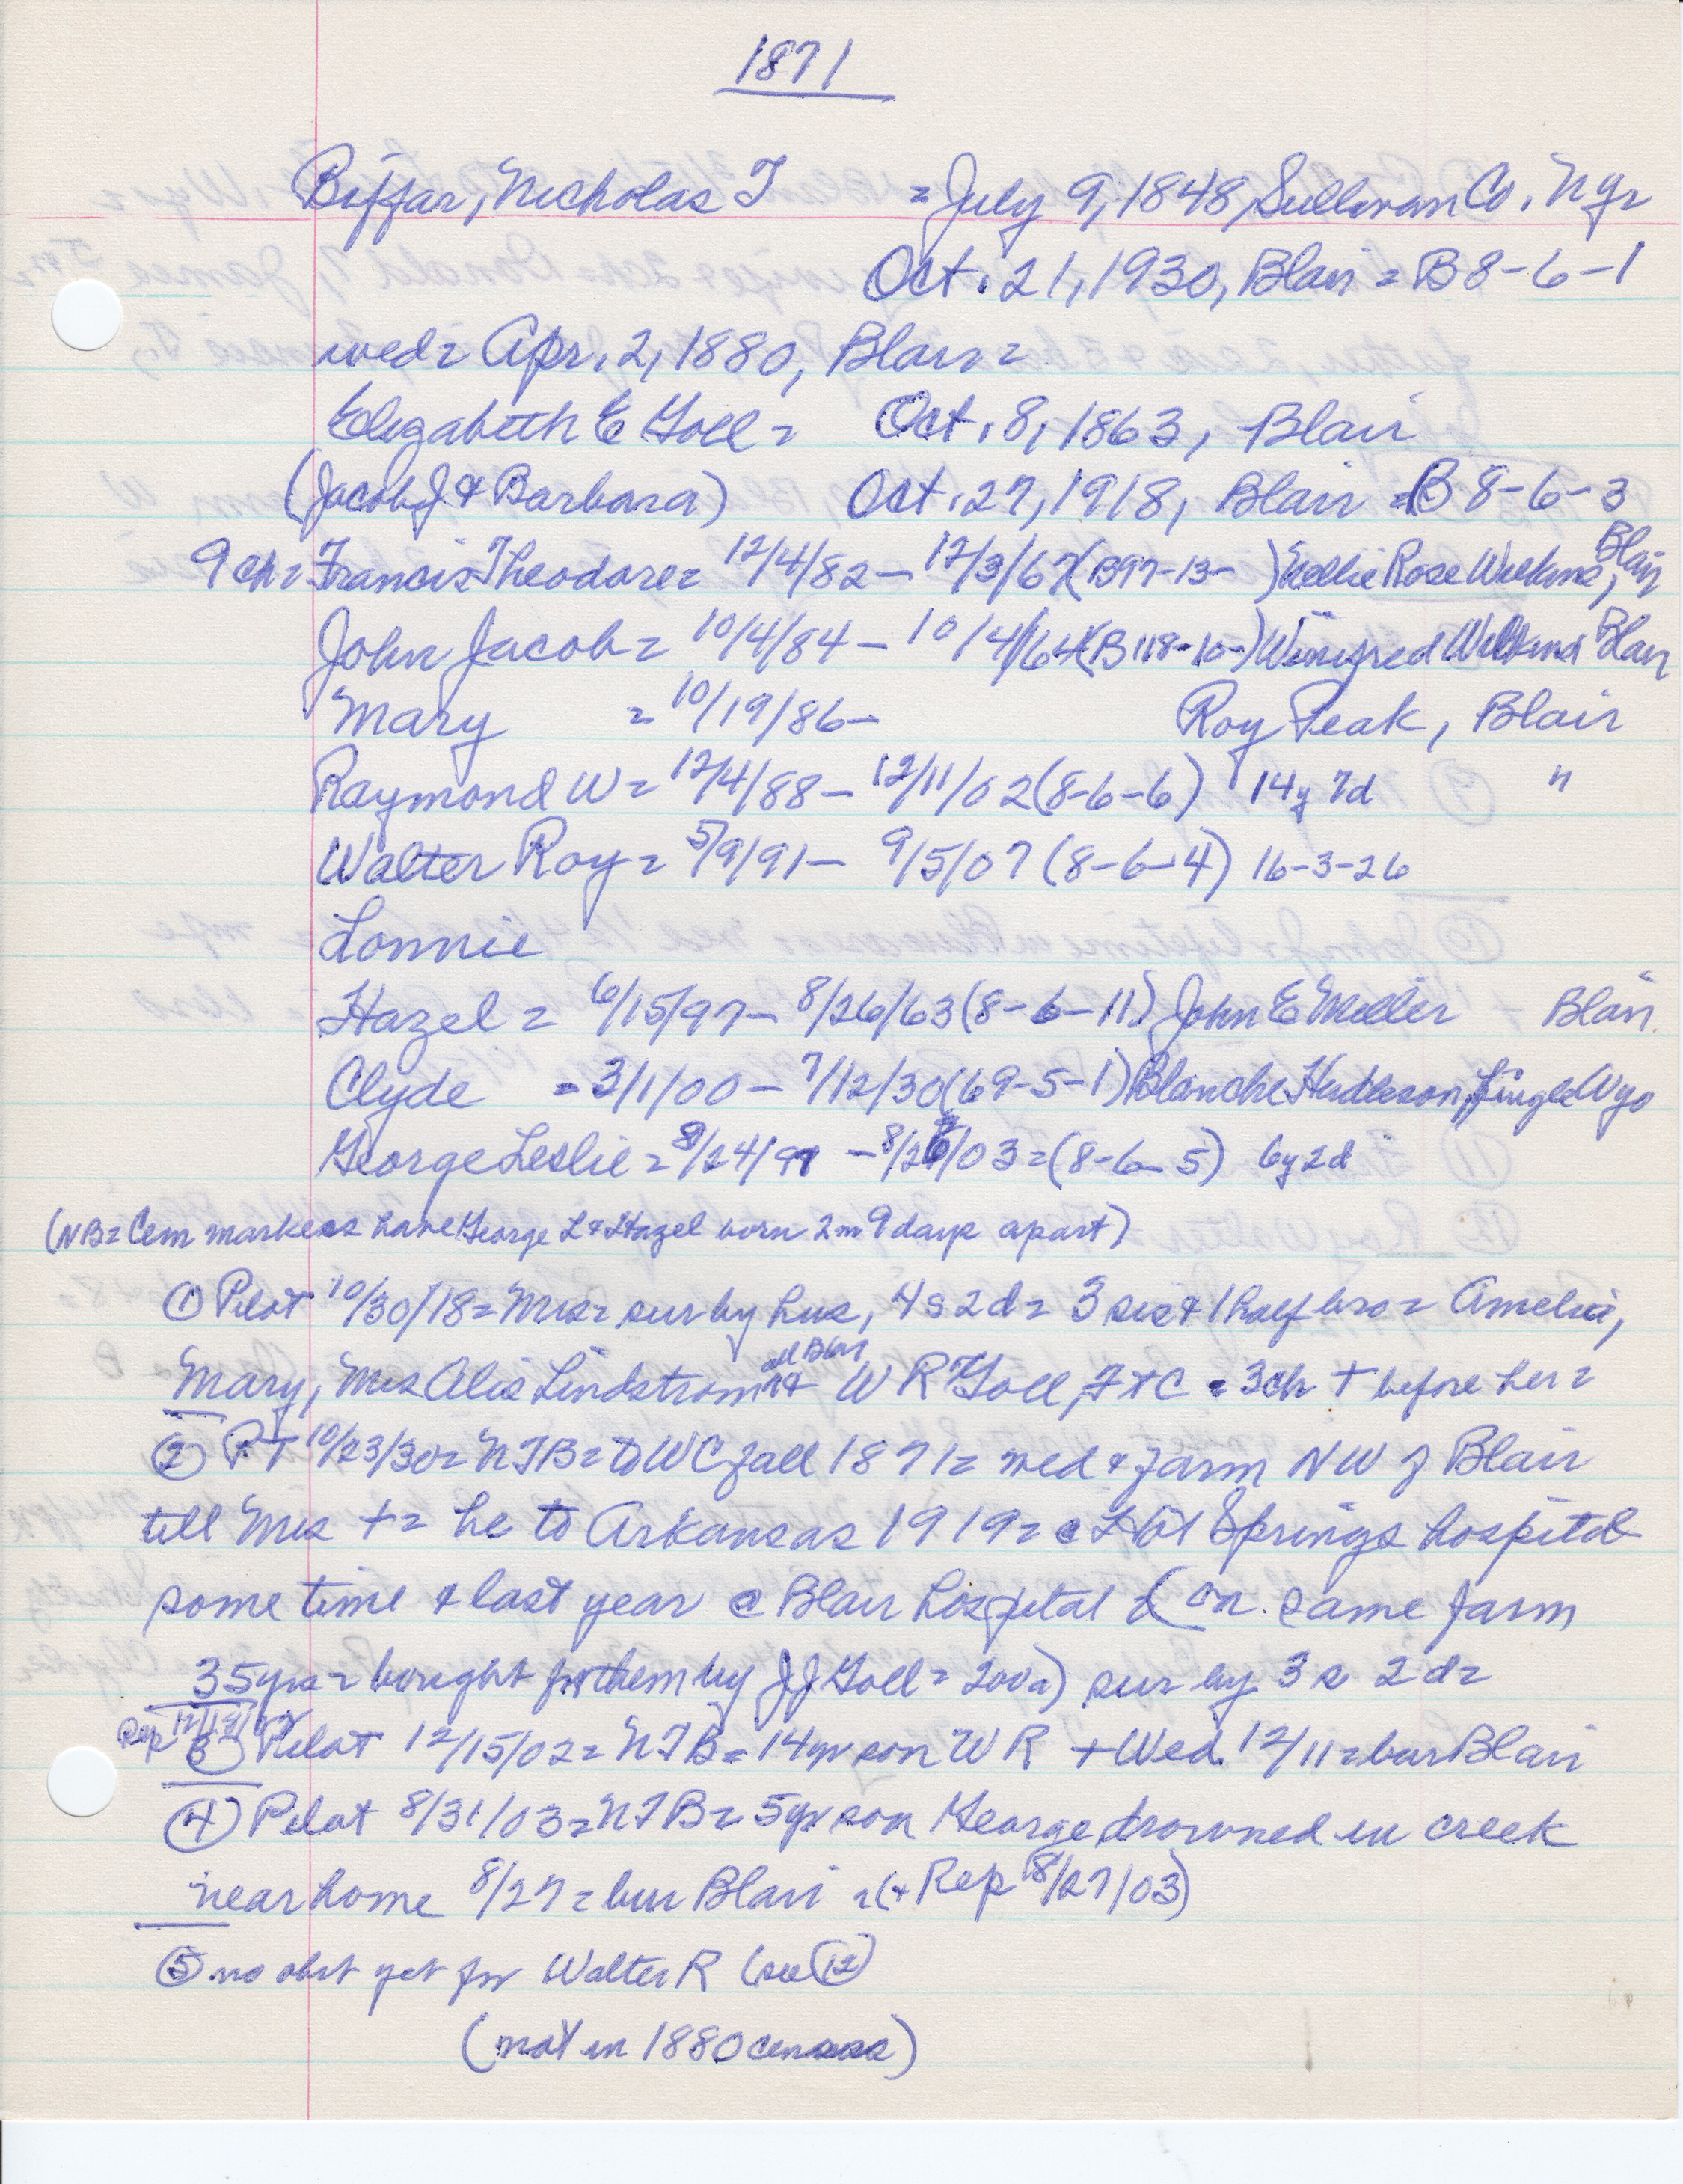 1871
Biffar, Nicholas T = July 9, 1848, Sullivan Co. N Y =
Oct. 21, 1930, Blair = B 8-6-1
wed = Apr. 2, 1880, Blair =
Elizabeth E Goll = Oct. 8, 1863, Blair
(Jacob J & Barbara) Oct. 27, 1918, Blair = B 8-6-3
9 ch = Francis Theodore = 12/4/82 - 12/3/67 (B97-13- ) Nellie Rose Wilkins, Blair
John Jacob = 10/4/84 - 10/4/64 (B 118-10-) Winifred Blair
Mary = 10/19/86 - Roy Peak, Blair
Raymond W = 12/4/88 - 12/11/02 (8-6-6) 14y 7d "
Walter Roy = 5/9/91 - 9/5/07 (8-6-4) 16-3-26
Lonnie
Hazel = 6/15/97 - 8/26/63 (8-6-11) John E Miller Blair
Clyde = 3/1/00 - 7/12/30 (69-5-1) Blanche Hudleson, Lingle Wyo
George Leslie = 8/24/97 - 8/26/03 = (8-6-5) 6y 2d
(NB = Cem markers have George L & Hazel born 2m 9 days apart)
① Pilot 10/30/18 = Mrs = sur by hus, 4 s 2 d = 3 sis & 1 half bro = Amelia,
Mary, Mrs Alis Lindstrom all Blair & W R Goll, F+C = 3 ch + before her =
② PT 10/23/30 = NTB = to WC fall 1871 = wed & farm NW of Blair
till Mrs + = he to Arkansas 1919 = @ Hot Springs hospital
some time & last year @ Blair hospital (on same farm
35 yrs = bought for them by J J Goll = 200a) sur by 3 s 2 d =
Rep
③ Pilot 12/15/02 = NTB = 14yr son W R + Wed. 12/11 = bur Blair
④ Pilot 8/31/03 = NTB = 5yr son George drowned in creek
near home 8/27 = bur Blair = (+ Rep 8/27/03)
⑤ no obit yet for Walter R (see ⑫)
(not in 1880 census)